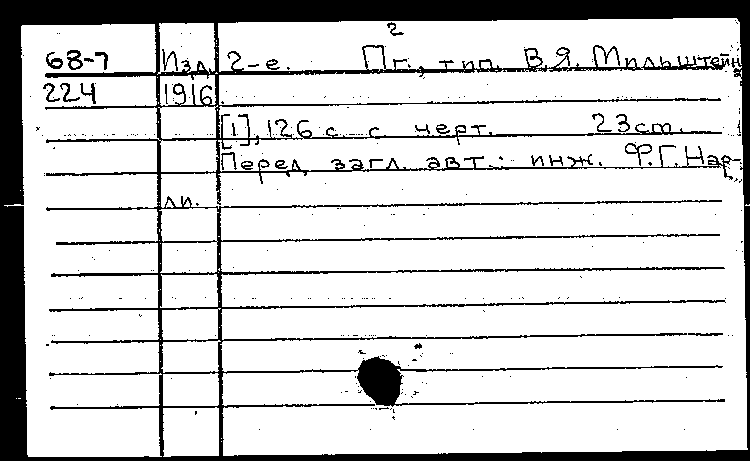 2
68-7 Изд. 2-е. Пг., тип. В.Я. Мильштейн
224 1916.
[1], 126 с. с черт. 23cm.
Перед загл. авт.: инж. Ф.Г. Нар-
ли.